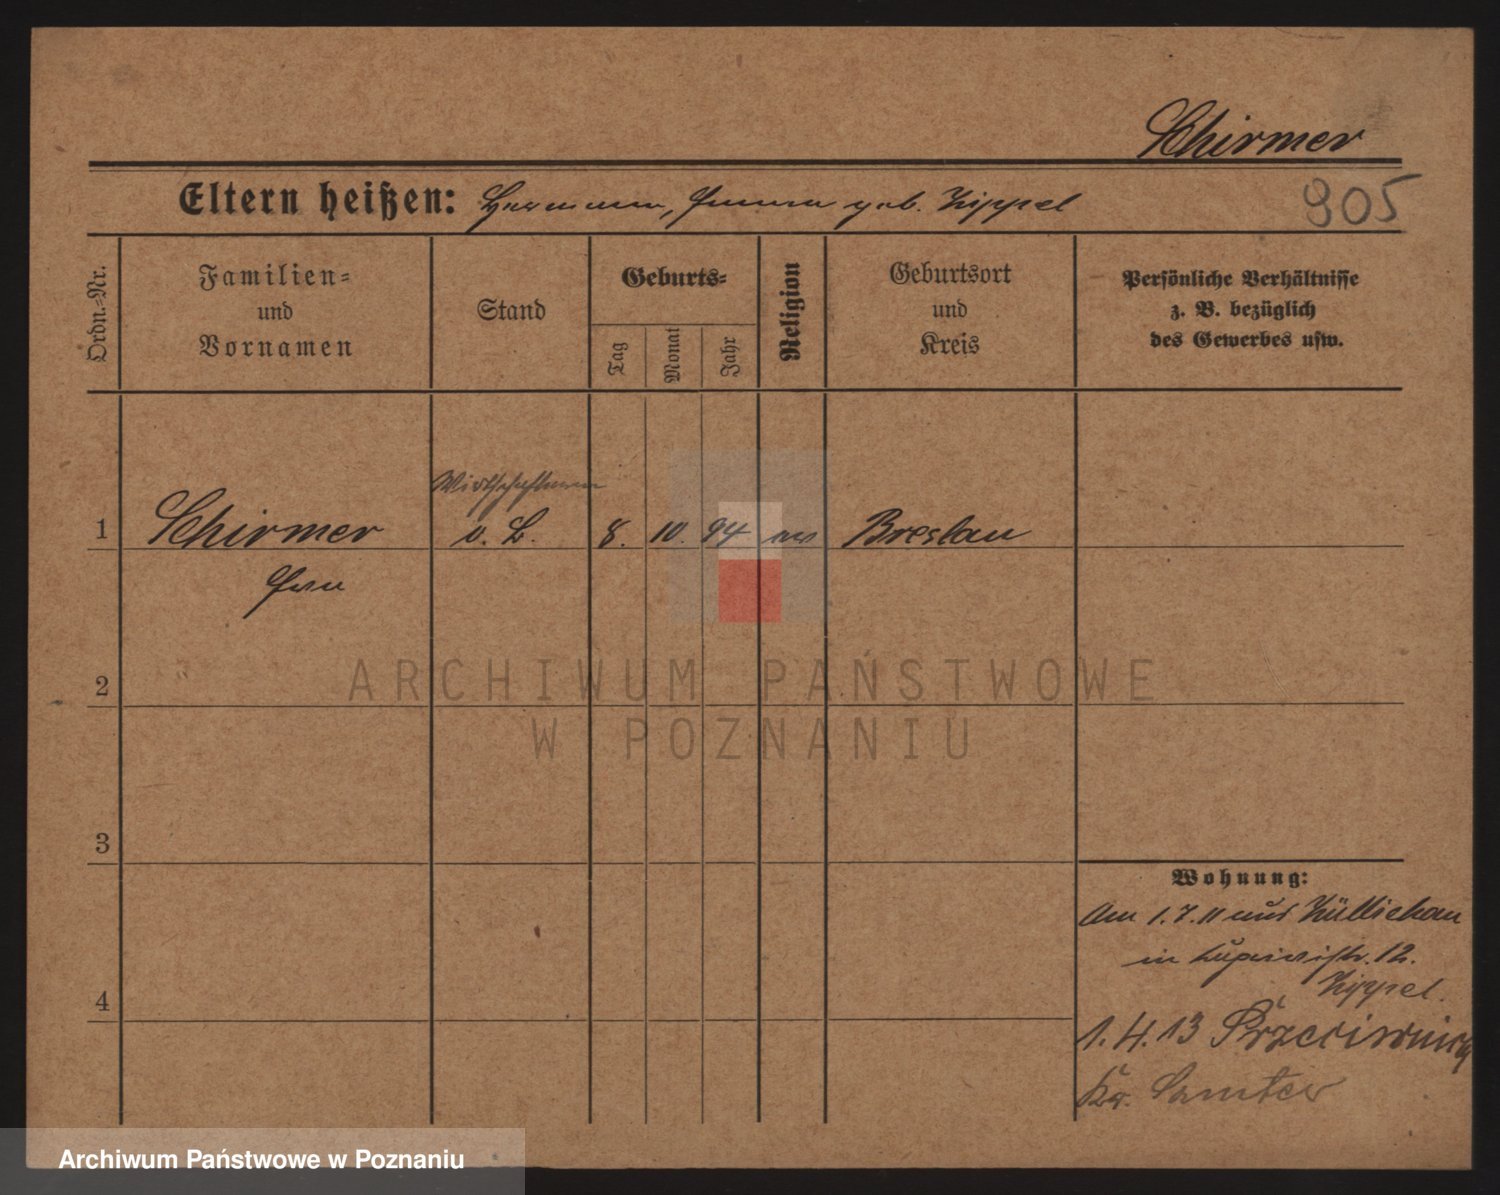 Schirmer
Eltern heißen: Hermann, Emma geb. Zippel
905
Ordn.=Nr.
Familien=
und
Vornamen
Stand
Geburts=
Tag
Monat
Jahr
Religion
Geburtsort
und
Kreis
Persönliche Verhältnisse
z. B. bezüglich
des Gewerbes usw.
1
Schirmer
v. L.
8.
10.
94
ev
Breslau
2
3
4
Wohnung:
Am 1.7.11 aus Züllichau
in 12.
Zippel.
1.4.13
Kr. Samter
ARCHIWUM PAŃSTWOWE
W POZNANIU
Archiwum Państwowe w Poznaniu